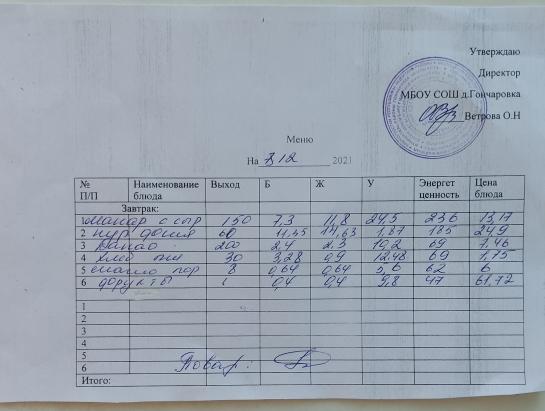 Утверждаю
Директор
МБОУ СОШ д.Гончаровка
Ветрова О.Н
Меню
На 8 12 2021
№ П/П Наименование блюда Выход Б Ж У Энергет ценность Цена блюда
Завтрак:
1 с сыр 150 7,3 11,8 24,5 236 13,17
2 60 11,45 14,63 1,87 185 24,9
3 Какао 200 2,4 2,3 10,2 69 7,46
4 Хлеб пш 30 3,28 0,9 12,48 69 1,75
5 пор 8 0,64 0,64 5,6 62 6
6 1 0,4 0,4 9,8 47 61,72
1
2
3
4
5
6 Повар:
Итого: